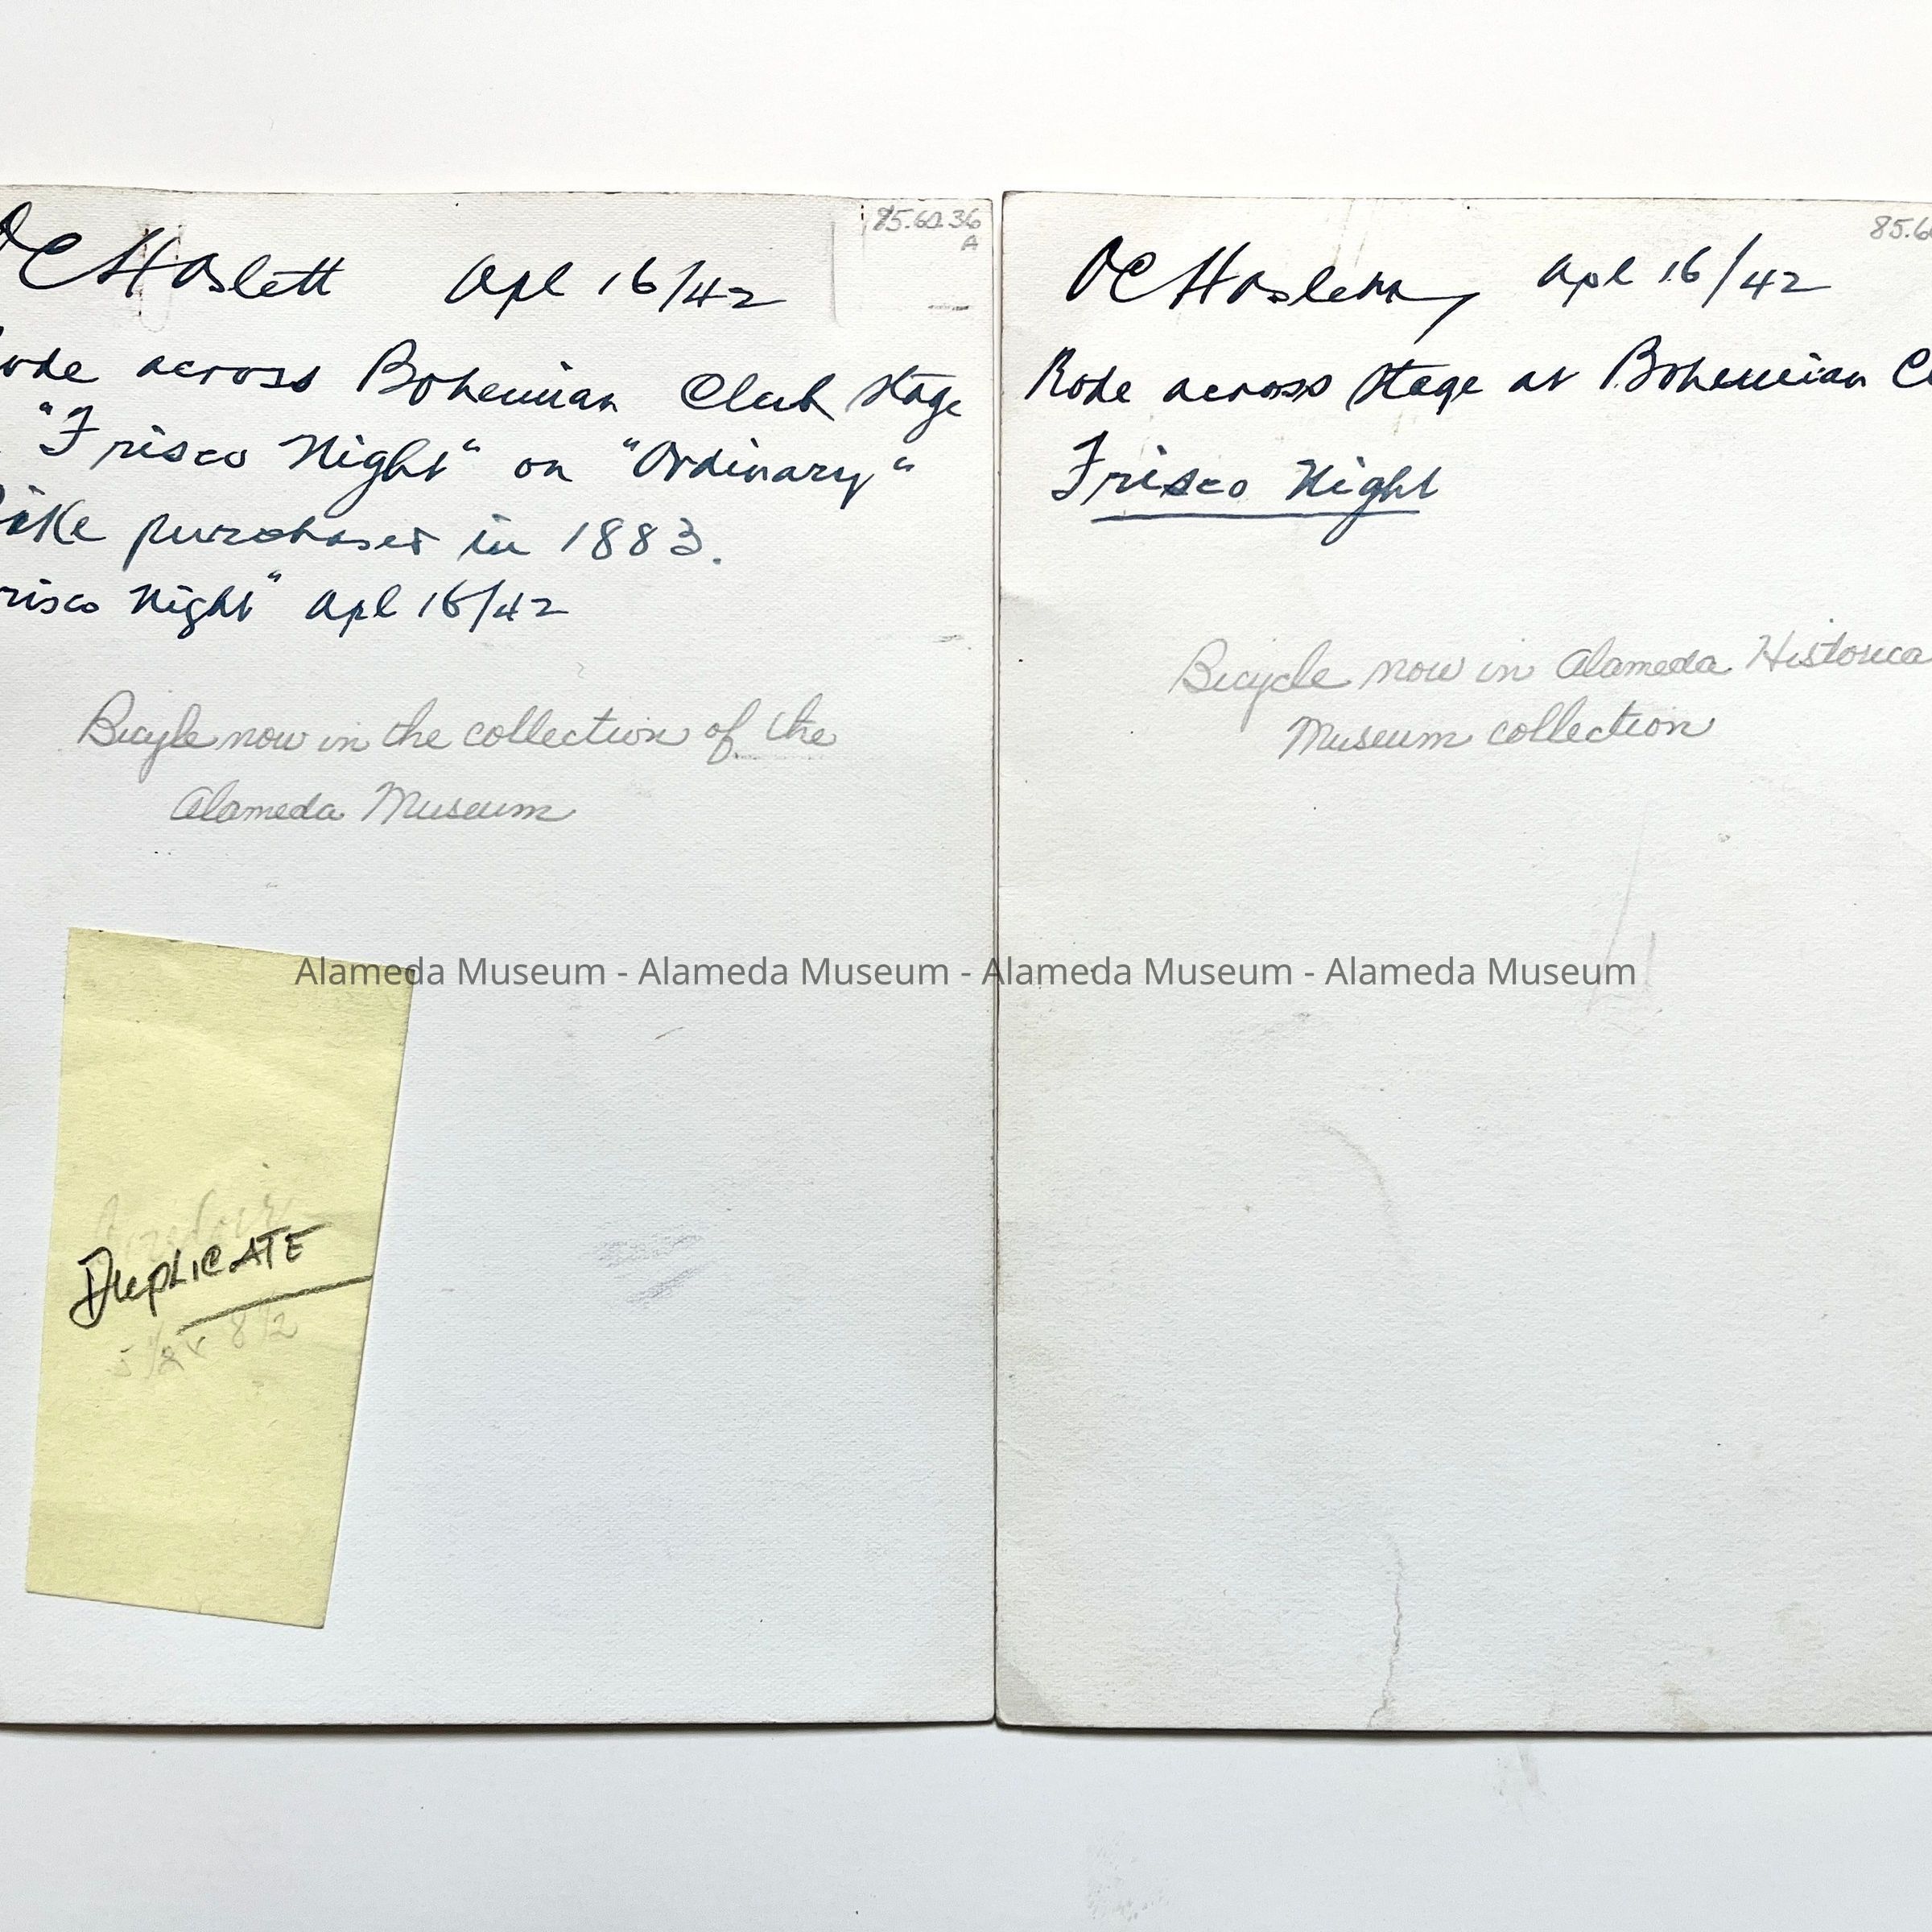 OC Haslett Apl 16/42
85.60.36
A
ode across Bohemian Club Stage
"Frisco Night" on "Ordinary"
Bike purchased in 1883.
risco Night" Apl 16/42
Bicyle now in the collection of the
Alameda Museum
DUPLICATE
5 1/2 x 8 1/2
OC Haslett Apl 16/42
85.6
Rode across Stage at Bohemian Cl
Frisco Night
Bicycle now in Alameda Historica
Museum collection
Alameda Museum - Alameda Museum - Alameda Museum - Alameda Museum